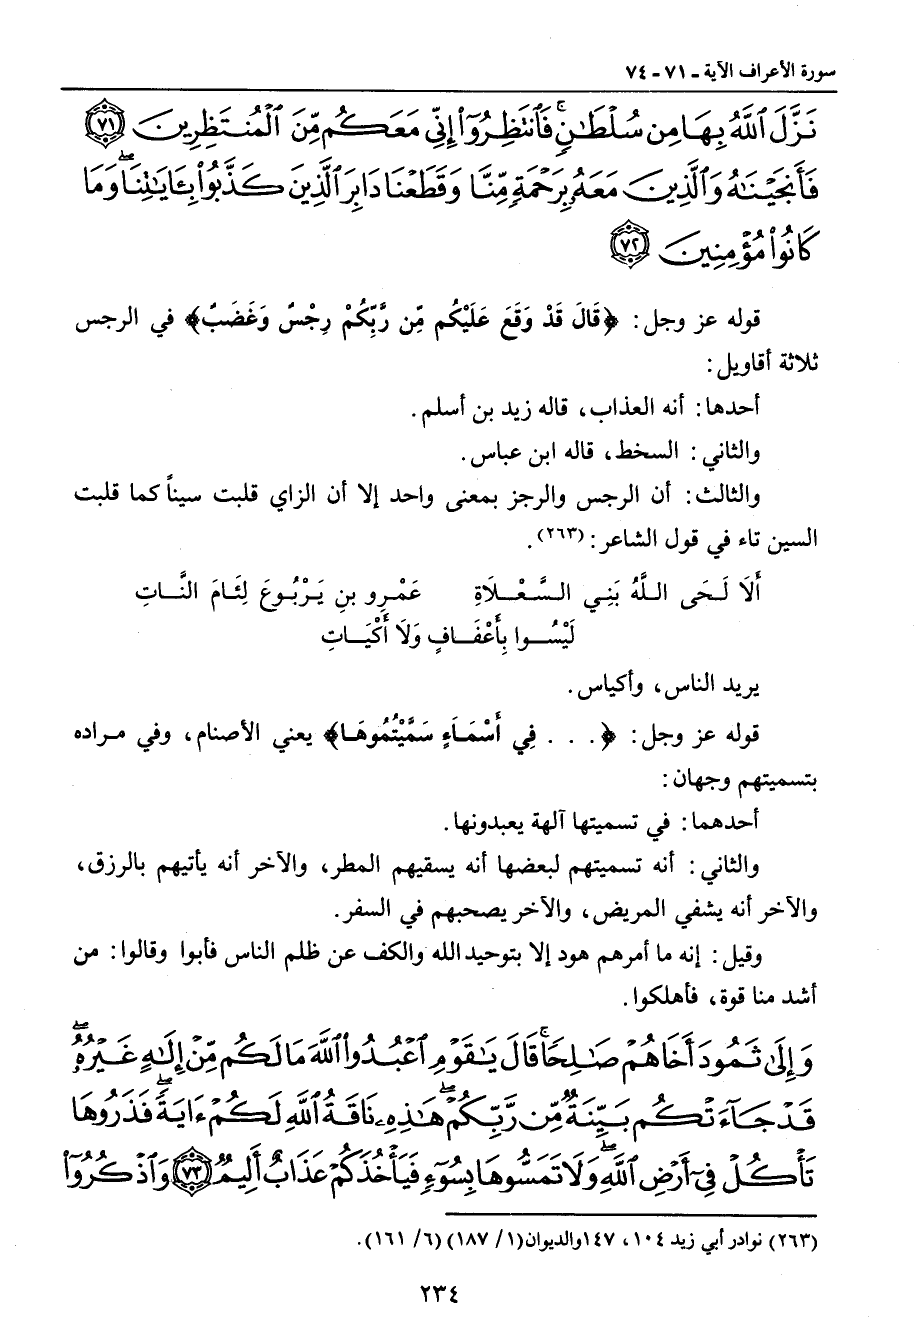 سورة الأعراف الآية ـ ٧١ - ٧٤
نَزَّلَ ٱللَّهُ بِهَا مِن سُلْطَـٰنٍۚ فَٱنتَظِرُوٓا۟ إِنِّى مَعَكُم مِّنَ ٱلْمُنتَظِرِينَ ٧١
فَأَنجَيْنَـٰهُ وَٱلَّذِينَ مَعَهُۥ بِرَحْمَةٍ مِّنَّا وَقَطَعْنَا دَابِرَ ٱلَّذِينَ كَذَّبُوا۟ بِـَٔايَـٰتِنَاۖ وَمَا
كَانُوا۟ مُؤْمِنِينَ ٧٢
قوله عز وجل: ﴿قَالَ قَدْ وَقَعَ عَلَيْكُم مِّن رَّبِّكُمْ رِجْسٌ وَغَضَبٌ﴾ في الرجس
ثلاثة أقاويل:
أحدها: أنه العذاب، قاله زيد بن أسلم.
والثاني: السخط، قاله ابن عباس.
والثالث: أن الرجس والرجز بمعنى واحد إلا أن الزاي قلبت سيناً كما قلبت
السين تاء في قول الشاعر:(٢٦٣).
أَلَا لَحَى اللَّهُ بَنِي السَّعْلَاةِ عَمْرِو بنِ يَرْبُوعَ لِئَامَ النَّاتِ
لَيْسُوا بِأَعْفَافٍ وَلَا أَكْيَاتِ
يريد الناس، وأكياس.
قوله عز وجل: ﴿. . . فِي أَسْمَاءٍ سَمَّيْتُمُوهَا﴾ يعني الأصنام، وفي مراده
بتسميتهم وجهان:
أحدهما: في تسميتها آلهة يعبدونها.
والثاني: أنه تسميتهم لبعضها أنه يسقيهم المطر، والآخر أنه يأتيهم بالرزق،
والآخر أنه يشفي المريض، والآخر يصحبهم في السفر.
وقيل: إنه ما أمرهم هود إلا بتوحيد الله والكف عن ظلم الناس فأبوا وقالوا: من
أشد منا قوة، فأهلكوا.
وَإِلَىٰ ثَمُودَ أَخَاهُمْ صَـٰلِحًاۚ قَالَ يَـٰقَوْمِ ٱعْبُدُوا۟ ٱللَّهَ مَا لَكُم مِّنْ إِلَـٰهٍ غَيْرُهُۥۖ
قَدْ جَآءَتْكُم بَيِّنَةٌ مِّن رَّبِّكُمْۖ هَـٰذِهِۦ نَاقَةُ ٱللَّهِ لَكُمْ ءَايَةًۖ فَذَرُوهَا
تَأْكُلْ فِىٓ أَرْضِ ٱللَّهِۖ وَلَا تَمَسُّوهَا بِسُوٓءٍ فَيَأْخُذَكُمْ عَذَابٌ أَلِيمٌ ٧٣ وَٱذْكُرُوٓا۟
(٢٦٣) نوادر أبي زيد ١٠٤، ١٤٧والديوان(١/ ١٨٧) (٦/ ١٦١).
٢٣٤